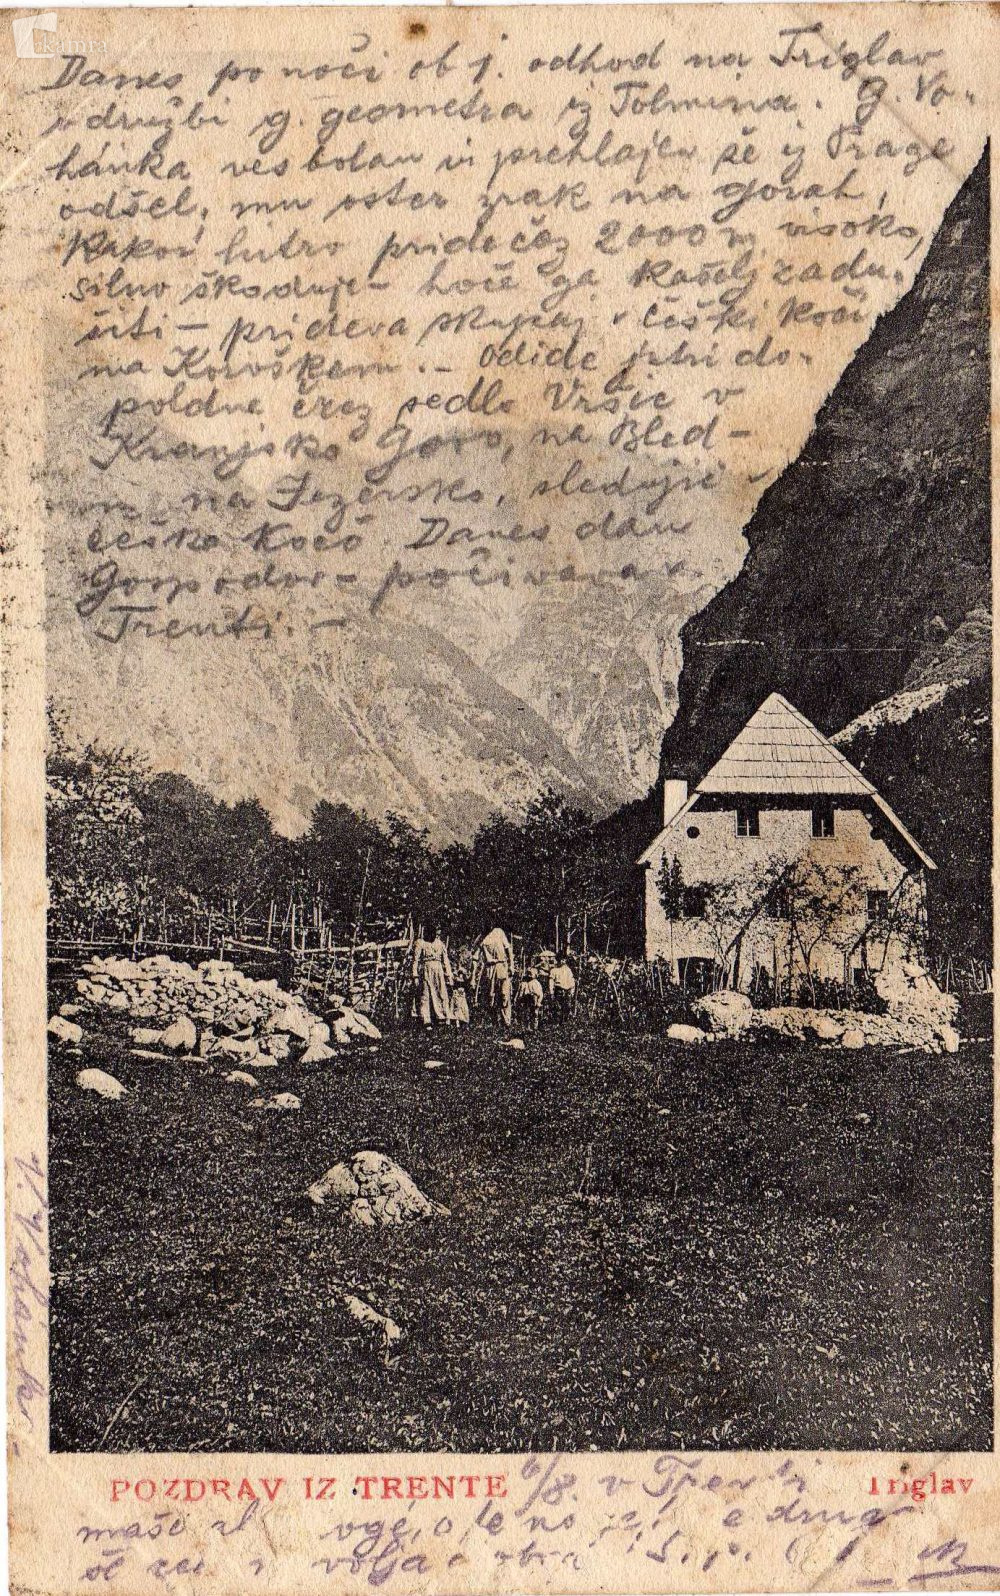 kamra
Danes po noči ob 1. odhod na Triglav
v družbi g. geometra iz Tolmina. G. Vo-
hánka ves bolan in prehlajen še iz Prage
odšel, mu oster zrak na gorah,
kakor hitro pride čez 2000 m visoko,
silno škoduje - hoče ga kašelj zadu-
šiti - prideva skupaj v češki koči
na Koroškem. - Odide jutri do-
poldne črez sedlo Vršič v
Kranjsko Goro, na Bled -
na Jezersko, sledujič v
češko kočo Danes dan
Gospodov - počivava v
Trenti. -
V. Vohánka
POZDRAV IZ TRENTE 6/8. v Trenti Triglav